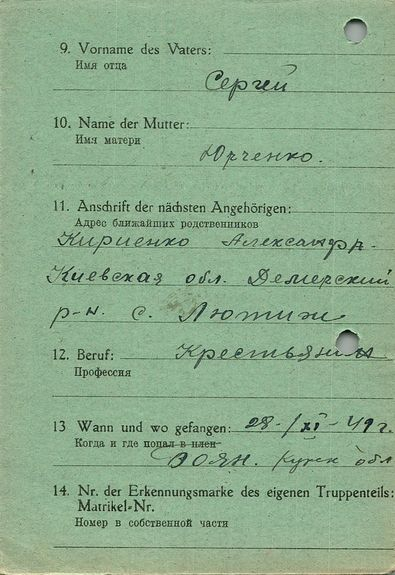 9. Vorname des Vaters:
Имя отца
Сергей
10. Name der Mutter:
Имя матери
Юрченко.
11. Anschrift der nächsten Angehörigen:
Адрес ближайших родственников
Кириенко Александр.
Киевская обл. Демерский
р-н. с. Лютиж
12. Beruf: Крестьянин
Профессия
13 Wann und wo gefangen: 28-/XI-41г.
Когда и где попал в плен
Обоян. Курск обл
14. Nr. der Erkennungsmarke des eigenen Truppenteils:
Matrikel-Nr.
Номер в собственной части